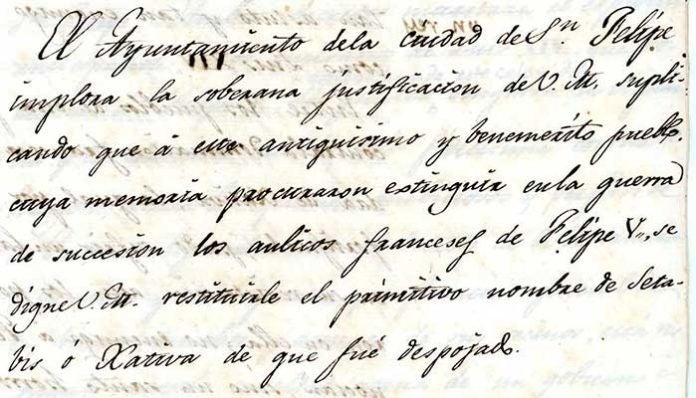 El Ayuntamiento dela ciudad de Sn. Felipe
implora la soberana justificacion de V. M. supli-
cando que á este antiquisimo y benemérito pueblo,
cuya memoria procuraron extinguir enla guerra
de succesion los aulicos franceses de Felipe V., se
digne V. M. restituirle el primitivo nombre de Seta-
bis ó Xativa de que fué despojado.